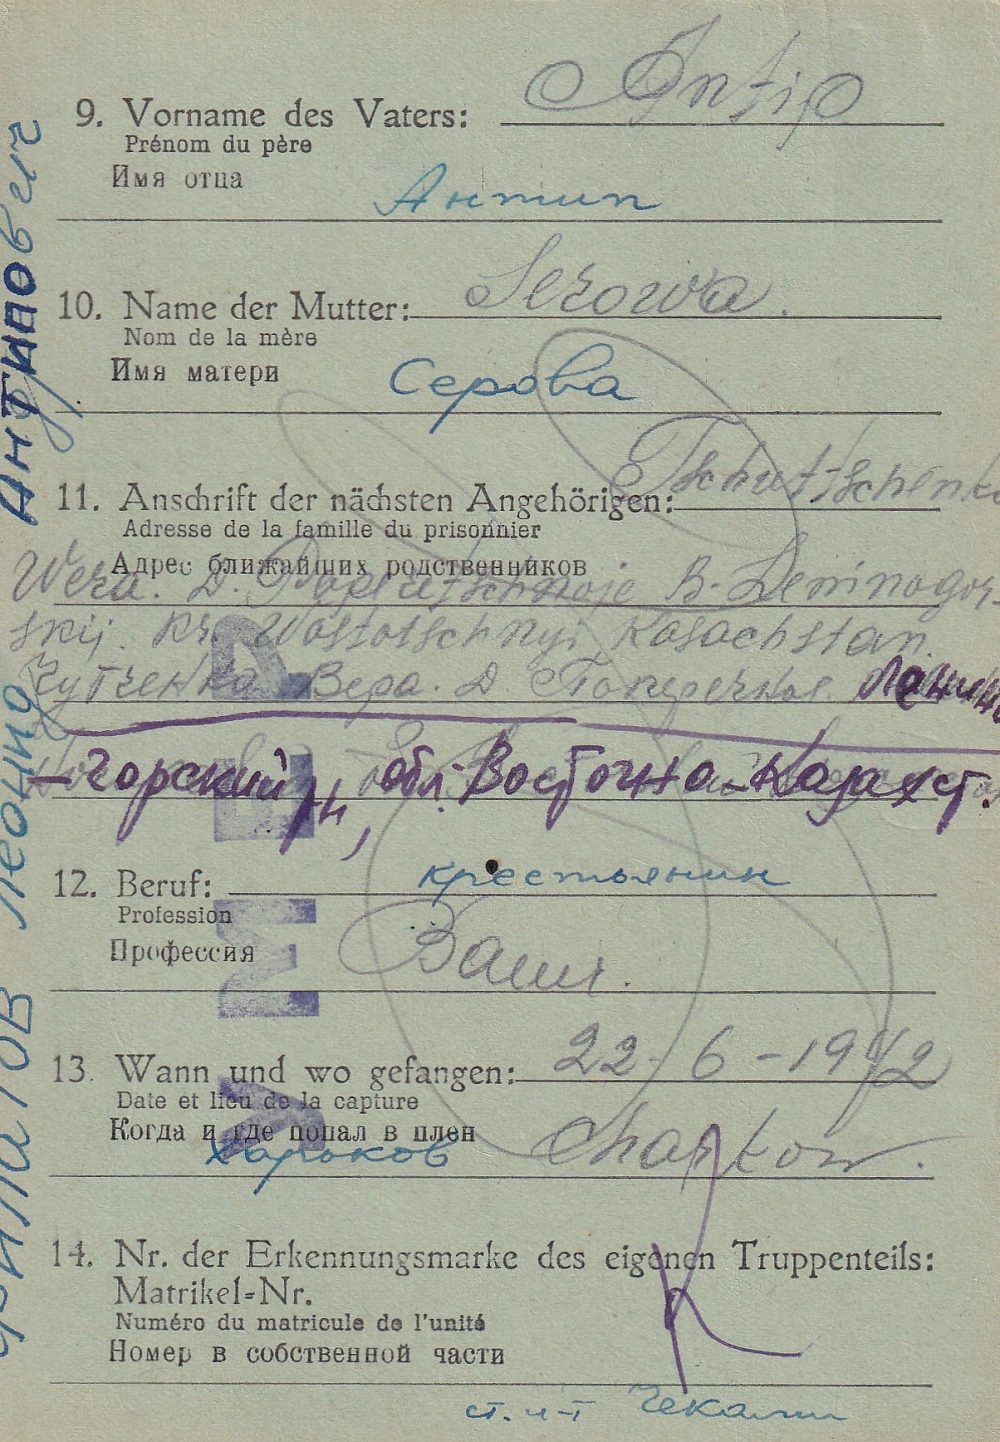 9. Vorname des Vaters: Antip
Prénom du père
Имя отца
Антип
10. Name der Mutter: Serowa.
Nom de la mère
Имя матери
Серова
11. Anschrift der nächsten Angehörigen: Tschutschenko
Adresse de la famille du prisonnier
Адрес ближайших родственников
Wera. D. Poperetschnoje B. Leninogor-
skij. Kr. Wostotschnyj Kasachstan.
Вера. Д Поперечное
-горский рн, обл. Восточно-Казахст.
12. Beruf: крестьянин
Profession
Профессия
Bauer.
13. Wann und wo gefangen: 22-6-1942
Date et lieu de la capture
Когда и где попал в плен
Харьков Charkow.
14. Nr. der Erkennungsmarke des eigenen Truppenteils:
Matrikel-Nr.
Numéro du matricule de l'unité
Номер в собственной части
ст. л-т
Леонид Антипович